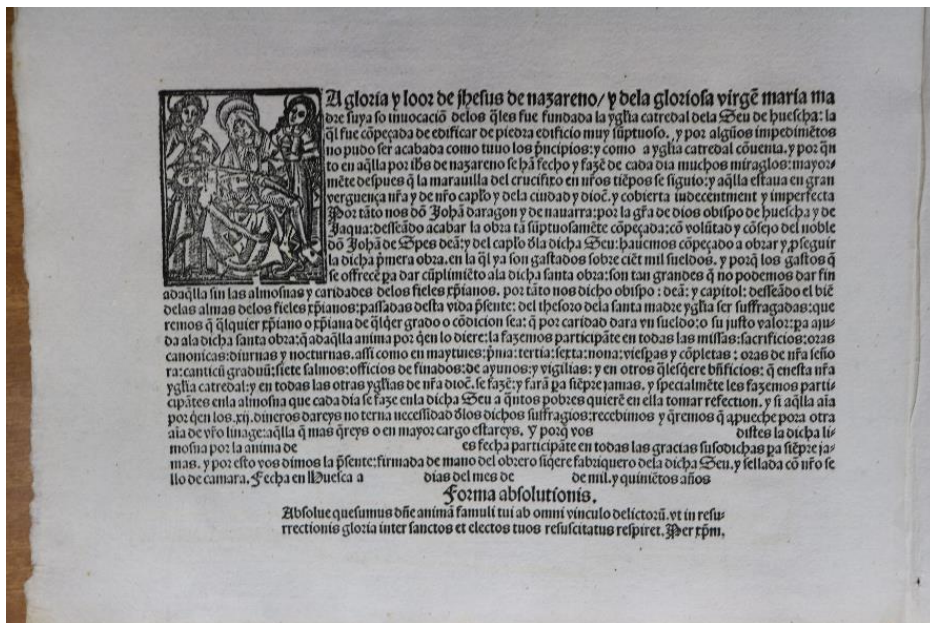 A gloria y loor de Jhesus de nazareno/ y dela gloriosa virgẽ maria ma
dre suya so inuocaciõ delos q̃les fue fundada la yg̃lia catredal dela Seu de huescha: la
q̃l fue cõpeçada de edificar de piedra edificio muy sũptuoso. y por algũos impedimẽtos
no pudo ser acabada como tuuo los p̃ncipios: y como a yglia catredal cõuenta. y por q̃n
to en aq̃lla por ihs de nazareno se hã fecho y fazẽ de cada dia muchos miraglos: mayor-
mẽte despues q̃ la marauilla del crucifixo en nr̃os tiẽpos se siguio: y aq̃lla estaua en gran
verguença nr̃a y de nr̃o cap̃lo y dela ciudad y dioc̃. y cobierta indecentment y imperfecta
Por tãto nos dõ Johã daragon y de nauarra: por la gr̃a de dios obispo de huescha y de
Jaqua: desseãdo acabar la obra tã sũptuosamẽte cõpeçada: cõ volũtad y cõsejo del noble
dõ Johã de Spes deã: y del cap̃lo d̃la dicha Seu: hauemos cõpeçado a obrar y p̱seguir
la dicha p̃mera obra. en la q̃l ya son gastados sobre ciẽt mil sueldos. y porq̃ los gastos q̃
se offrecẽ p̱a dar cũplimiẽto ala dicha santa obra: son tan grandes q̃ no podemos dar fin
adaq̃lla sin las almosnas y caridades delos fieles xp̃ianos. por tãto nos dicho obispo: deã: y capitol: desseãdo el biẽ
delas almas delos fieles xp̃ianos: passadas desta vida p̃sente: del thesoro dela santa madre yg̃lia ser suffragadas: que
remos q̃ q̃lquier xp̃iano o xp̃iana de q̃lq̃er grado o cõdicion sea: q̃ por caridad dara vn sueldo: o su justo valor: p̱a aju-
da ala dicha santa obra: q̃ adaq̃lla anima por q̃en lo diere: la fazemos participãte en todas las missas: sacrificios: oras
canonicas: diurnas y nocturnas. assi como en maytines: p̃ma: tertia: sexta: nona: viesp̱as y cõpletas: oras de nr̃a seño
ra: canticũ graduũ: siete salmos: officios de finados: de ayunos: y vigilias: y en otros q̃lesq̃ere bñficios: q̃ enesta nr̃a
yg̃lia catredal: y en todas las otras yg̃lias de nr̃a dioc̃. se fazẽ: y farã p̱a siẽpre jamas. y specialmẽte les fazemos parti-
cipãtes enla almosna que cada dia se faze enla dicha Seu a q̃ntos pobres quierẽ en ella tomar refection. y si aq̃lla aĩa
por q̃en los .xij. dineros dareys no terna necessidad d̃los dichos suffragios: recebimos y q̃remos q̃ ap̱ueche pora otra
aĩa de vr̃o linage: aq̃lla q̃ mas q̃reys o en mayor cargo estareys. Y porq̃ vos distes la dicha li-
mosna por la anima de es fecha participãte en todas las gracias susodichas p̱a siẽpre ja-
mas. y por esto vos dimos la p̃sente: firmada de mano del obrero siq̃ere fabriquero dela dicha Seu. y sellada cõ nr̃o se
llo de camara. Fecha en Huesca a dias del mes de de mil. y quiniẽtos años
Forma absolutionis.
Absolue quesumus dñe animã famuli tui ab omni vinculo delictorũ. vt in resu-
rrectionis gloria inter sanctos et electos tuos resuscitatus respiret. Per xp̃m.